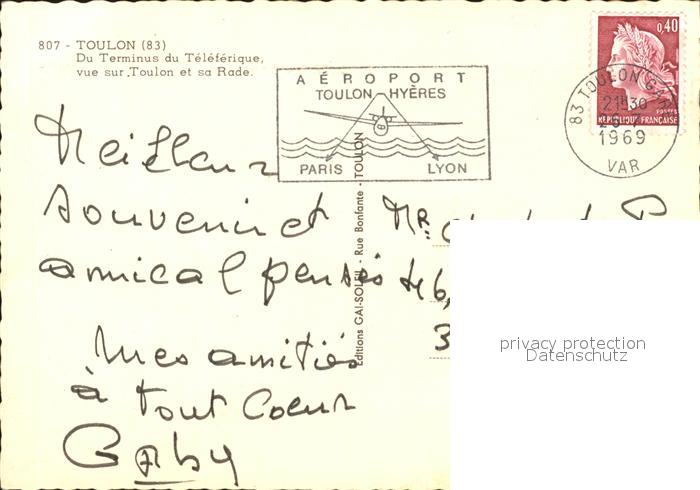 807 - TOULON (83)
Du Terminus du Téléférique,
vue sur Toulon et sa Rade.
AÉROPORT
TOULON HYÈRES
PARIS LYON
0,40
POSTES
REPUBLIQUE FRANÇAISE
83 TOULON
21H30
1969
VAR
Editions GAI-SOLEIL - Rue Bonfante - TOULON
Meilleur
souvenir et
amical pensés
Mes amitiés
à tout Coeur
Gaby
Mr.
46,
3
privacy protection
Datenschutz